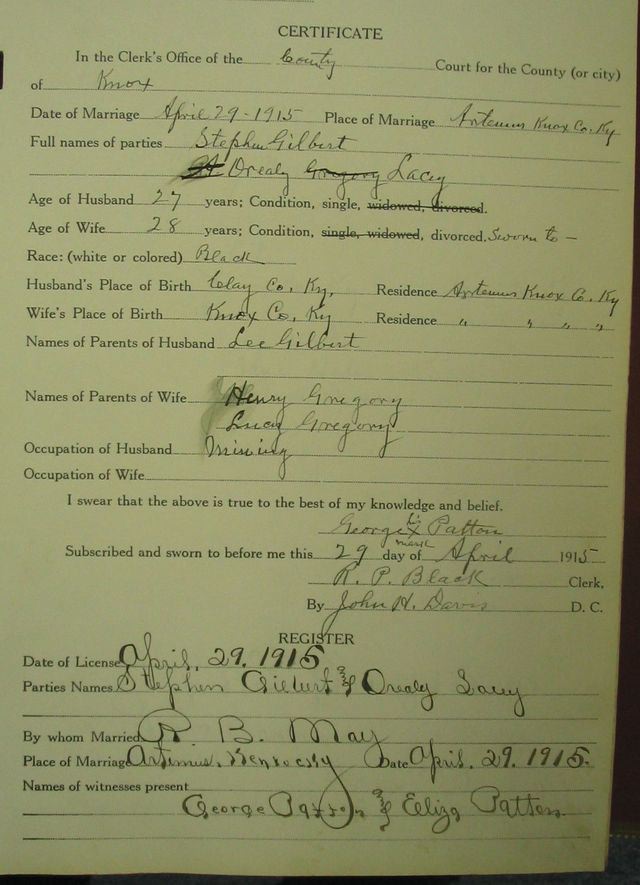 CERTIFICATE
In the Clerk's Office of the County Court for the County (or city)
of Knox
Date of Marriage April 29 - 1915 Place of Marriage Artemus Knox Co. Ky
Full names of parties Stephen Gilbert
Orealy Gregory Lacey
Age of Husband 27 years; Condition, single, widowed, divorced.
Age of Wife 28 years; Condition, single, widowed, divorced, Sworn to —
Race: (white or colored) Black
Husband's Place of Birth Clay Co. Ky, Residence Artemus Knox Co. Ky
Wife's Place of Birth Knox Co. Ky Residence " " " "
Names of Parents of Husband Lee Gilbert
Names of Parents of Wife Henry Gregory
Lucy Gregory
Occupation of Husband Mining
Occupation of Wife
I swear that the above is true to the best of my knowledge and belief.
George his X mark Patton
Subscribed and sworn to before me this 29 day of April 1915
R. P. Black Clerk,
By John H. Davis D. C.
REGISTER
Date of License April, 29, 1915
Parties Names Stephen Gilbert & Orealy Lacey
By whom Married R. B. May
Place of Marriage Artimus, Date April. 29. 1915.
Names of witnesses present
George & Eliza Patten